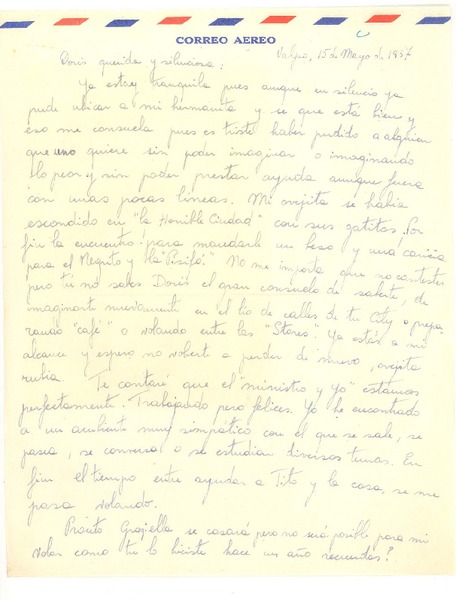 CORREO AEREO
Valpo, 15 de Mayo de 1957
Doris querida y silenciosa:
Ya estoy tranquila pues aunque en silencio ya
pude ubicar a mi hermanita y se que está bien y
eso me consuela pues es triste haber perdido a alguien
que uno quiere sin poder imaginar o imaginando
lo peor y sin poder prestar ayuda aunque fuera
con unas pocas líneas. Mi ovejita se había
escondido en "la Honible Ciudad" con sus gatitos! Por
fin la encuentro para mandarle un beso y una caricia
para el Negrito y No me importa que no contestes
pero tu no sabes Doris el gran consuelo de saberte, de
imaginarte nuevamente en el lío de calles de tu City o prepa
rando "café" o volando entre las "Stores". Ya estás a mi
alcance y espero no volverte a perder de nuevo, ovejita
rubia.
Te contaré que el "ministro y yo" estamos
perfectamente. Trabajando pero felices. Yo he encontrado
a un ambiente muy simpático con el que se sale, se
pasea, se conversa o se estudian diversos temas. En
fin el tiempo entre ayudar a Tito y la casa, se me
pasa volando.
Pronto Graziella se casará pero no será posible para mi
volar como tu lo hiciste hace un año recuerdas?